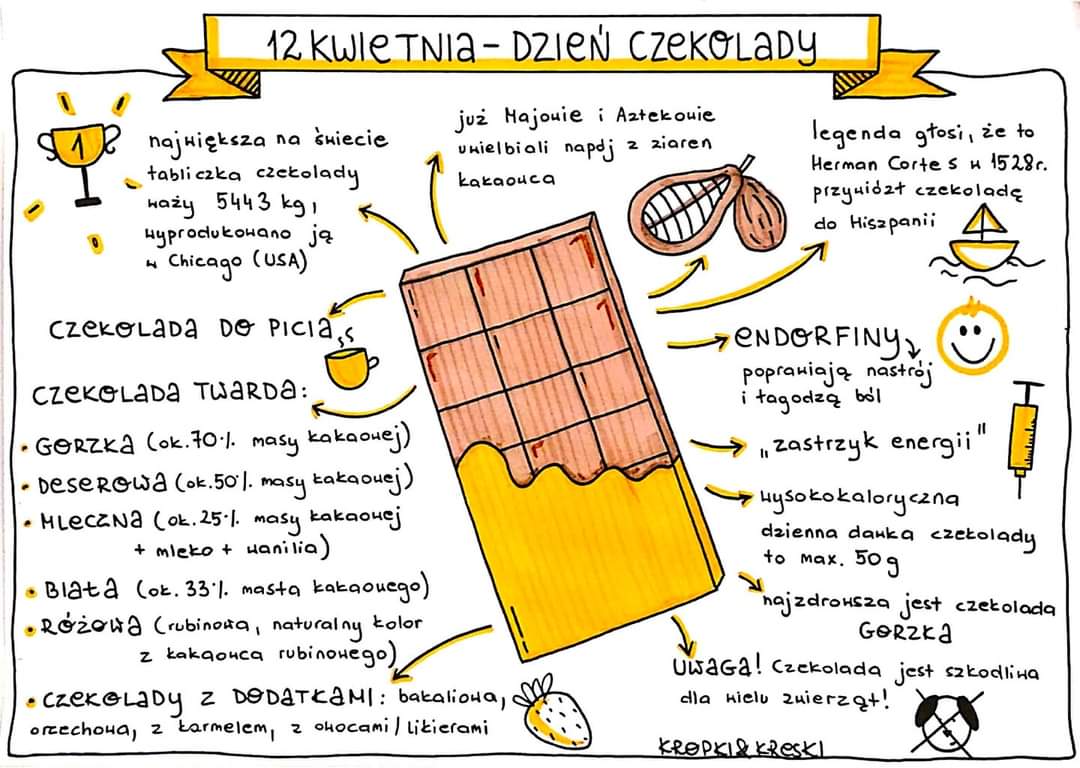 12 KWIETNIA - DZIEŃ CZEKOLADY
1
największa na świecie
tabliczka czekolady
waży 5443 kg,
wyprodukowano ją
w Chicago (USA)
już Majowie i Aztekowie
uwielbiali napój z ziaren
kakaowca
legenda głosi, że to
Herman Cortes w 1528r.
przywiózł czekoladę
do Hiszpanii
CZEKOLADA DO PICIA
CZEKOLADA TWARDA:
• GORZKA (ok. 70% masy kakaowej)
• DESEROWA (ok. 50% masy kakaowej)
• MLECZNA (ok. 25% masy kakaowej
+ mleko + wanilia)
• BIAŁA (ok. 33% masła kakaowego)
• RÓŻOWA (rubinowa, naturalny kolor
z kakaowca rubinowego)
• CZEKOLADY Z DODATKAMI: bakaliowa,
orzechowa, z karmelem, z owocami / likierami
ENDORFINY
poprawiają nastrój
i łagodzą ból
„zastrzyk energii"
wysokokaloryczna
dzienna dawka czekolady
to max. 50g
najzdrowsza jest czekolada
GORZKA
UWAGA! Czekolada jest szkodliwa
dla wielu zwierząt!
KROPKI&KRESKI